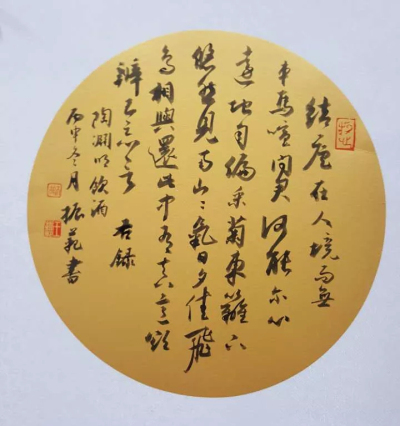 結廬在人境而無
車馬喧問君何能尔心
遠地自偏采菊東籬下
悠然見南山〻氣日夕佳飛
鳥相與還此中有真意欲
辨已忘言 右錄
陶淵明飲酒
丙申冬月振書